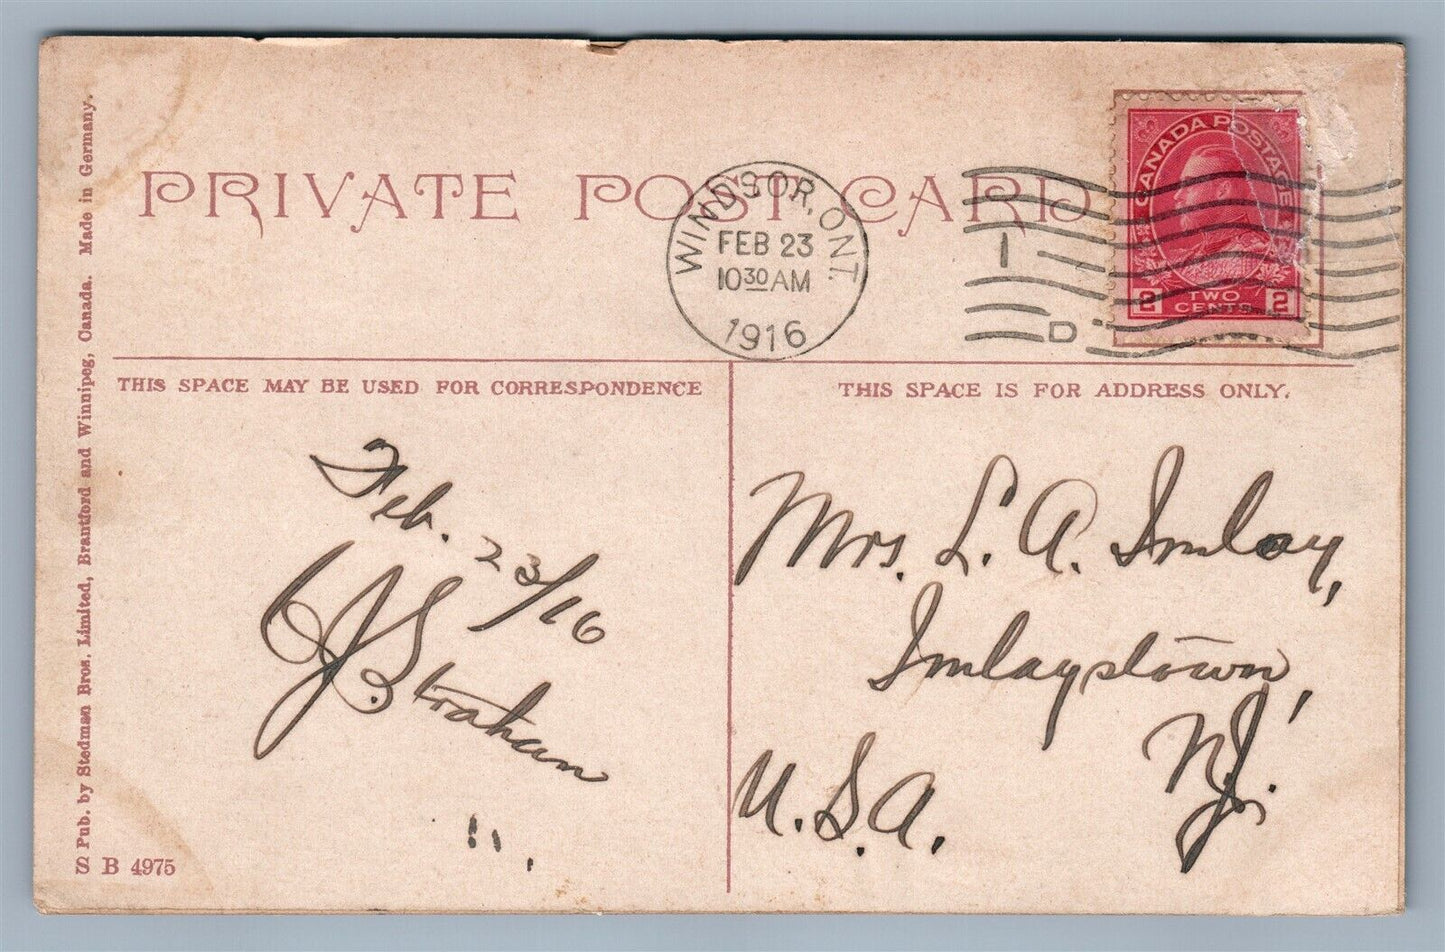 PRIVATE POST CARD
WINDSOR, ONT.
FEB 23
10 30 AM
1916
1
D
CANADA POSTAGE
2 TWO CENTS 2
THIS SPACE MAY BE USED FOR CORRESPONDENCE
THIS SPACE IS FOR ADDRESS ONLY.
Feb. 23/16
J. B. Strahan
Mrs. L. A. Imlay,
Imlaystown,
N.J.
U.S.A.
Pub. by Stedman Bros. Limited, Brantford and Winnipeg, Canada. Made in Germany.
S B 4975